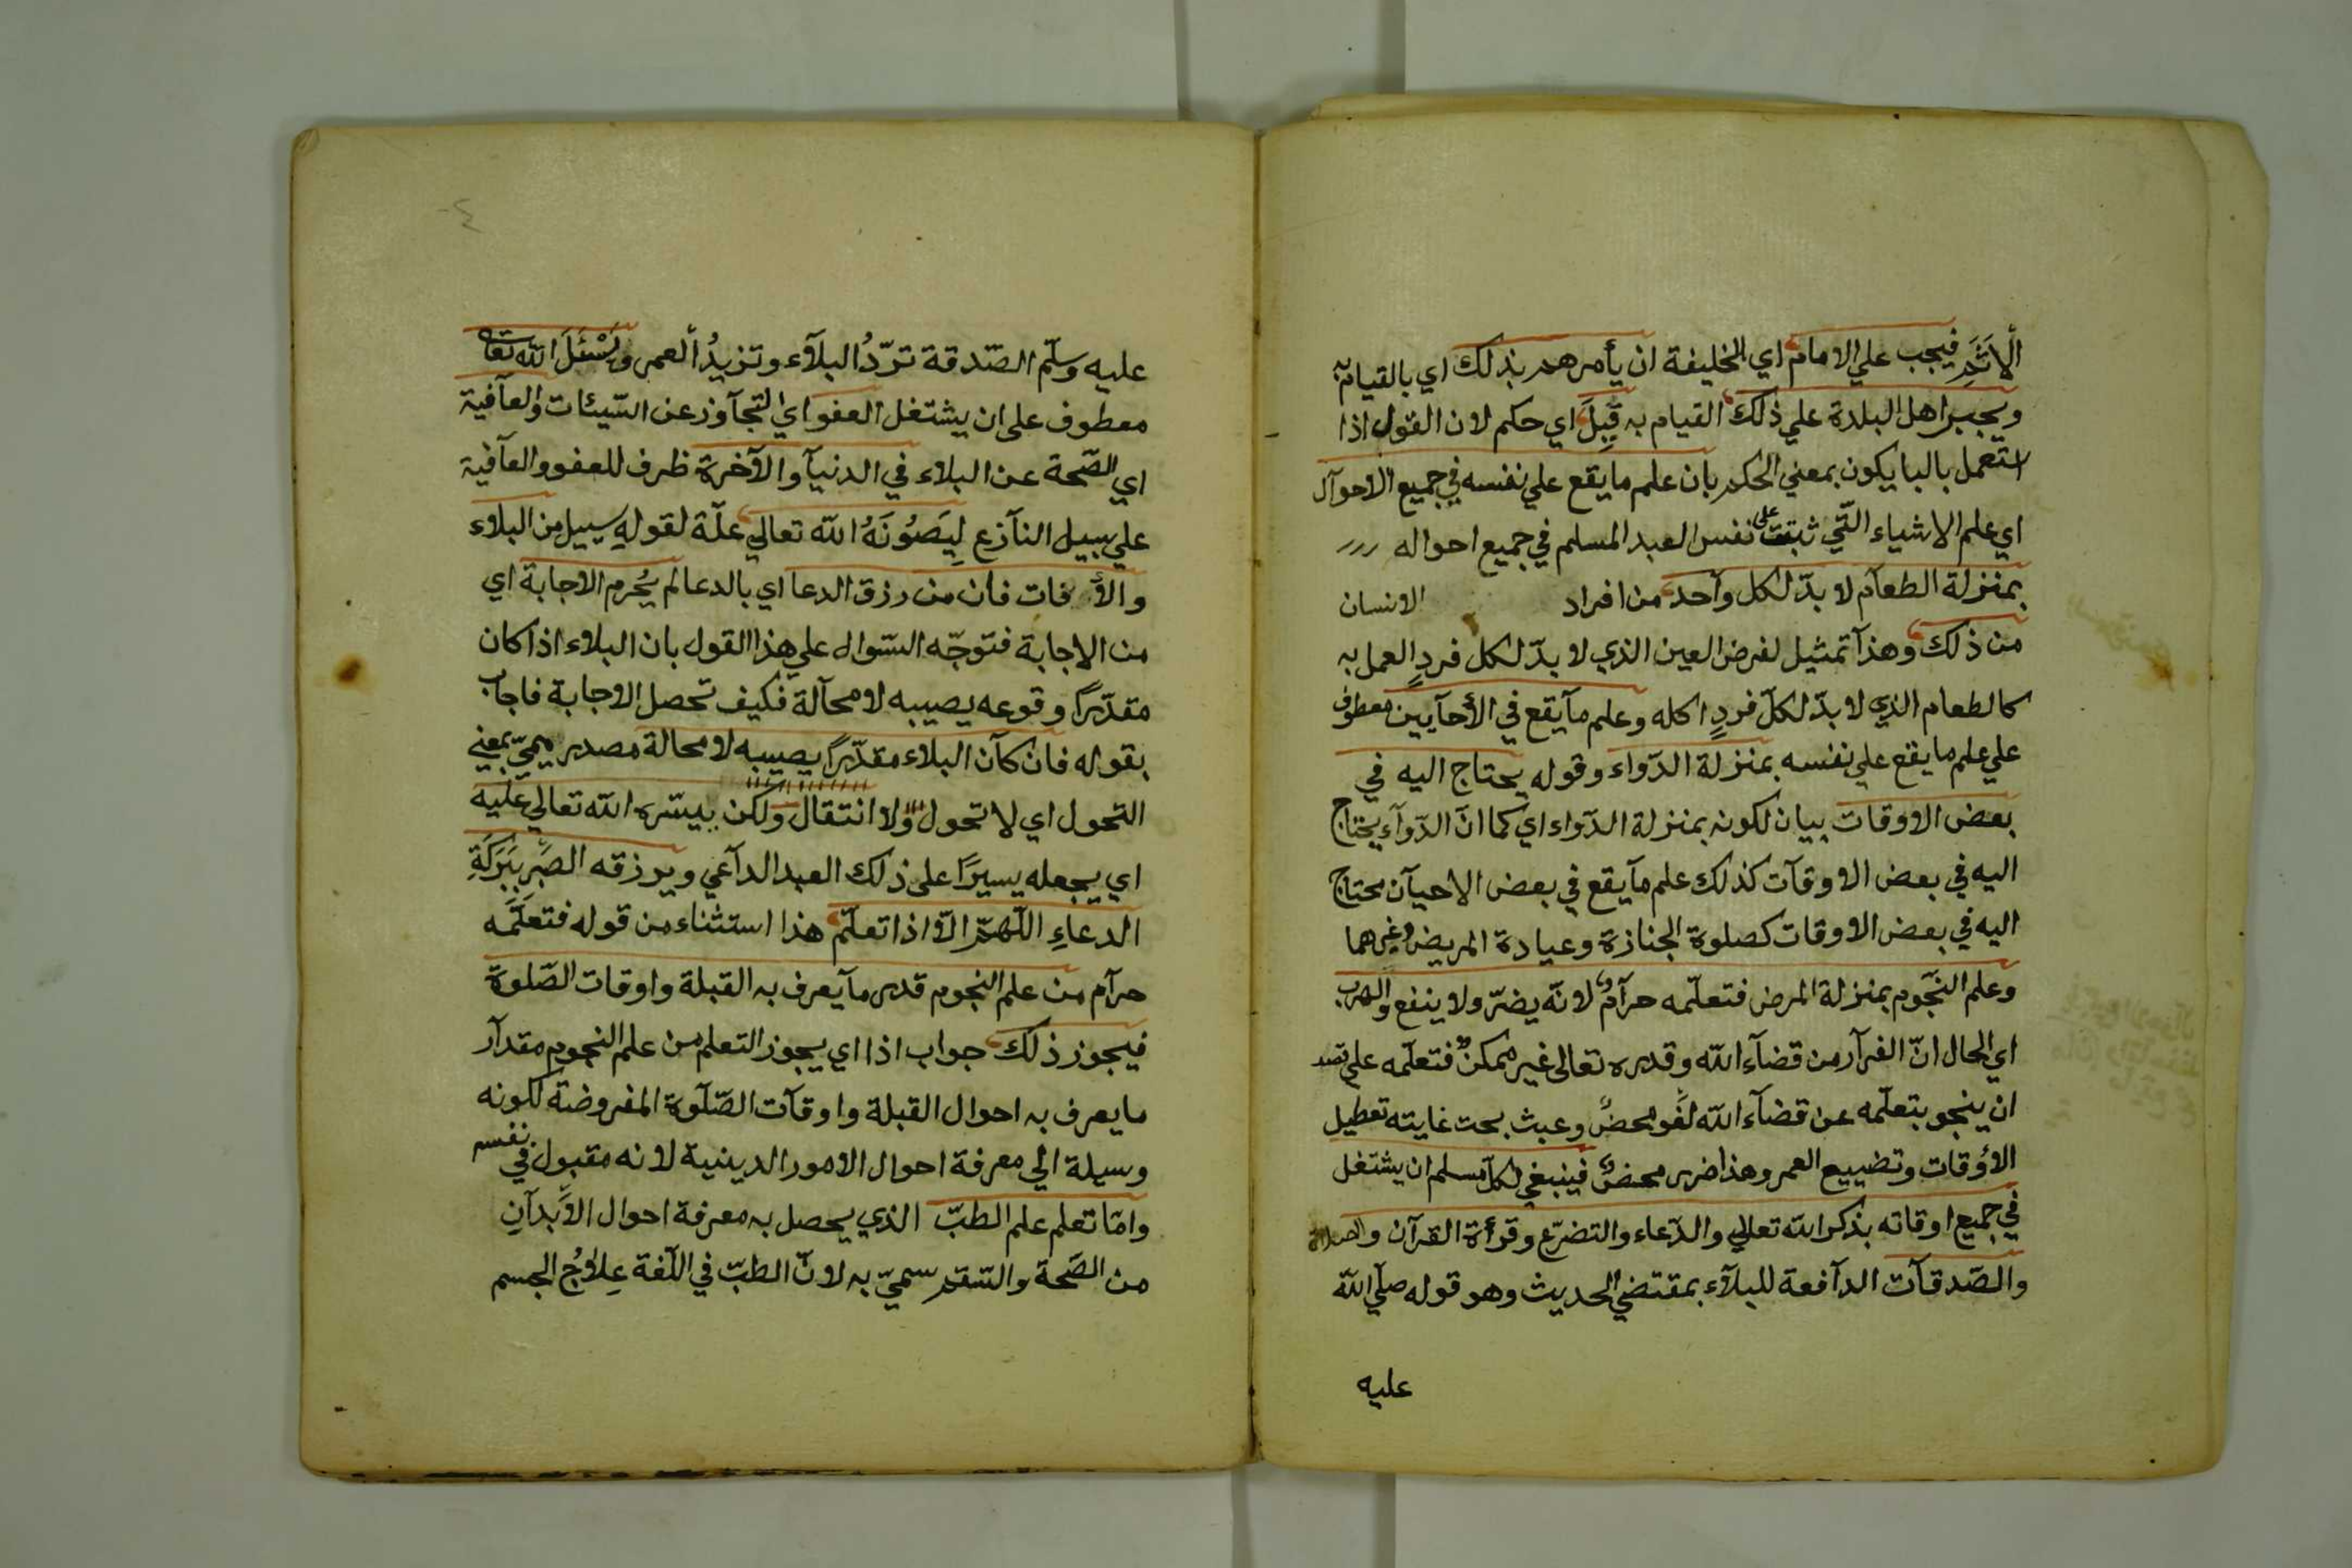 الْاَثَمِ فيجب علي الامام اي الخليفة ان يأمرهم بذلك اي بالقيام به
ويجبر اهل البلدة علي ذلك القيام به قِيلَ اي حكم لان القول اذا
استعمل بالبا يكون بمعني الحكم بان علم ما يقع علي نفسه في جميع الاحوآل
اي علم الاشياء الّتي ثبتت على نفس العبد المسلم في جميع احواله
بمنزلة الطعآم لا بدّ لكل وآحد من افراد الانسان
من ذلك وهذآ تمثيل لفرض العين الذي لا بدّ لكل فردٍ العمل به
كالطعام الذي لا بدّ لكلّ فردٍ اكله وعلم مآ يقع في الأحآيين معطوف
علي علم ما يقع علي نفسه بمنزلة الدّواء وقوله يحتاج اليه في
بعض الاوقات بيان لكونه بمنزلة الدّواء اي كما انّ الدّوآء يحتاج
اليه في بعض الاوقآت كذلك علم مآ يقع في بعض الاحيآن محتاج
اليه في بعض الاوقات كصلوة الجنازة وعيادة المريض وغيرهما
وعلم النّجوم بمنزلة المرض فتعلّمه حرآمٌ لانّه يضرّ ولا ينفع والهرب
اي الحال انّ الفرآر من قضآء الله وقدره تعالى غير ممكنٌ فتعلّمه علي قصد
ان ينجو بتعلّمه عن قضآء الله لغو محضٌ وعبث بحت غايته تعطيل
الأوقات وتضييع العمر وهذا ضرر محضٌ فينبغي لكلّ مسلم ان يشتغل
في جميع اوقاته بذكر الله تعالي والدّعاء والتضرّع وقرأة القرآن والصلاة
والصّدقآت الدآفعة للبلآء بمقتضي الحديث وهو قوله صلّي الله
عليه
عليه وسلّم الصّدقة تردُّ البلآء وتزيدُ العمر ويَسْئَلَ الله تعالى
معطوف على ان يشتغل العفو اي التّجآوز عن السّيئات والعآفية
اي الصّحة عن البلاء في الدنيآ والآخرة ظرف للعفو والعآفية
علي سبيل النآزع لِيَصُونَهُ الله تعالي علّة لقوله سبيل من البلاء
والأفات فان من رزق الدعا اي بالدعا لم يُحرم الاجابة اي
من الاجابة فتوجّه السّوال علي هذا القول بان البلاء اذا كان
مقدّرًا وقوعه يصيبه لا محآلة فكيف تحصل الاجابة فاجاب
بقوله فان كآن البلاء مقدّرًا يصيبه لا محالة مصدر ميميّ بمعني
التحول اي لا تحول ولا انتقال ولكن ييسّره الله تعالي عليه
اي يجعله يسيرًا على ذلك العبد الدآعي ويرزقه الصَّبر بِبَرَكَةِ
الدعاءِ اللّهمّ الّا اذا تعلّم هذا استثناء من قوله فتعلّمه
حرآم من علم النجوم قدر مآ يعرف به القبلة واوقات الصّلوة
فيجوز ذلك جواب اذا اي يجوز التعلم من علم النجوم مقدآر
ما يعرف به احوال القبلة واوقآت الصّلوة المفروضة لكونه
وسيلة الي معرفة احوال الامور الدينية لانه مقبول في نفسه
وامّا تعلم علم الطبّ الذي يحصل به معرفة احوال الأبدآنِ
من الصّحة والسّقم سميّ به لانّ الطبّ في اللّغة عِلاجُ الجسم